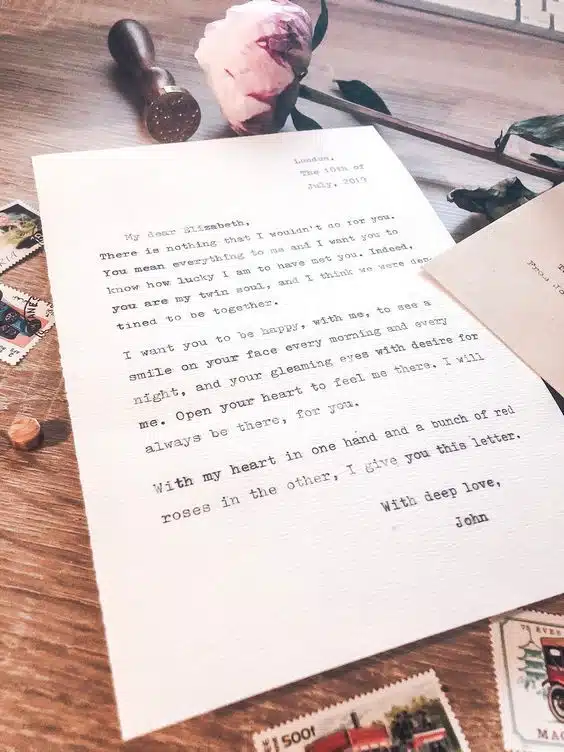 London,
The 10th of
July, 2019
My dear Elizabeth,
There is nothing that I wouldn't do for you.
You mean everything to me and I want you to
know how lucky I am to have met you. Indeed,
you are my twin soul, and I think we were des-
tined to be together.
I want you to be happy, with me, to see a
smile on your face every morning and every
night, and your gleaming eyes with desire for
me. Open your heart to feel me there. I will
always be there, for you.
With my heart in one hand and a bunch of red
roses in the other, I give you this letter.
With deep love,
John
1500f